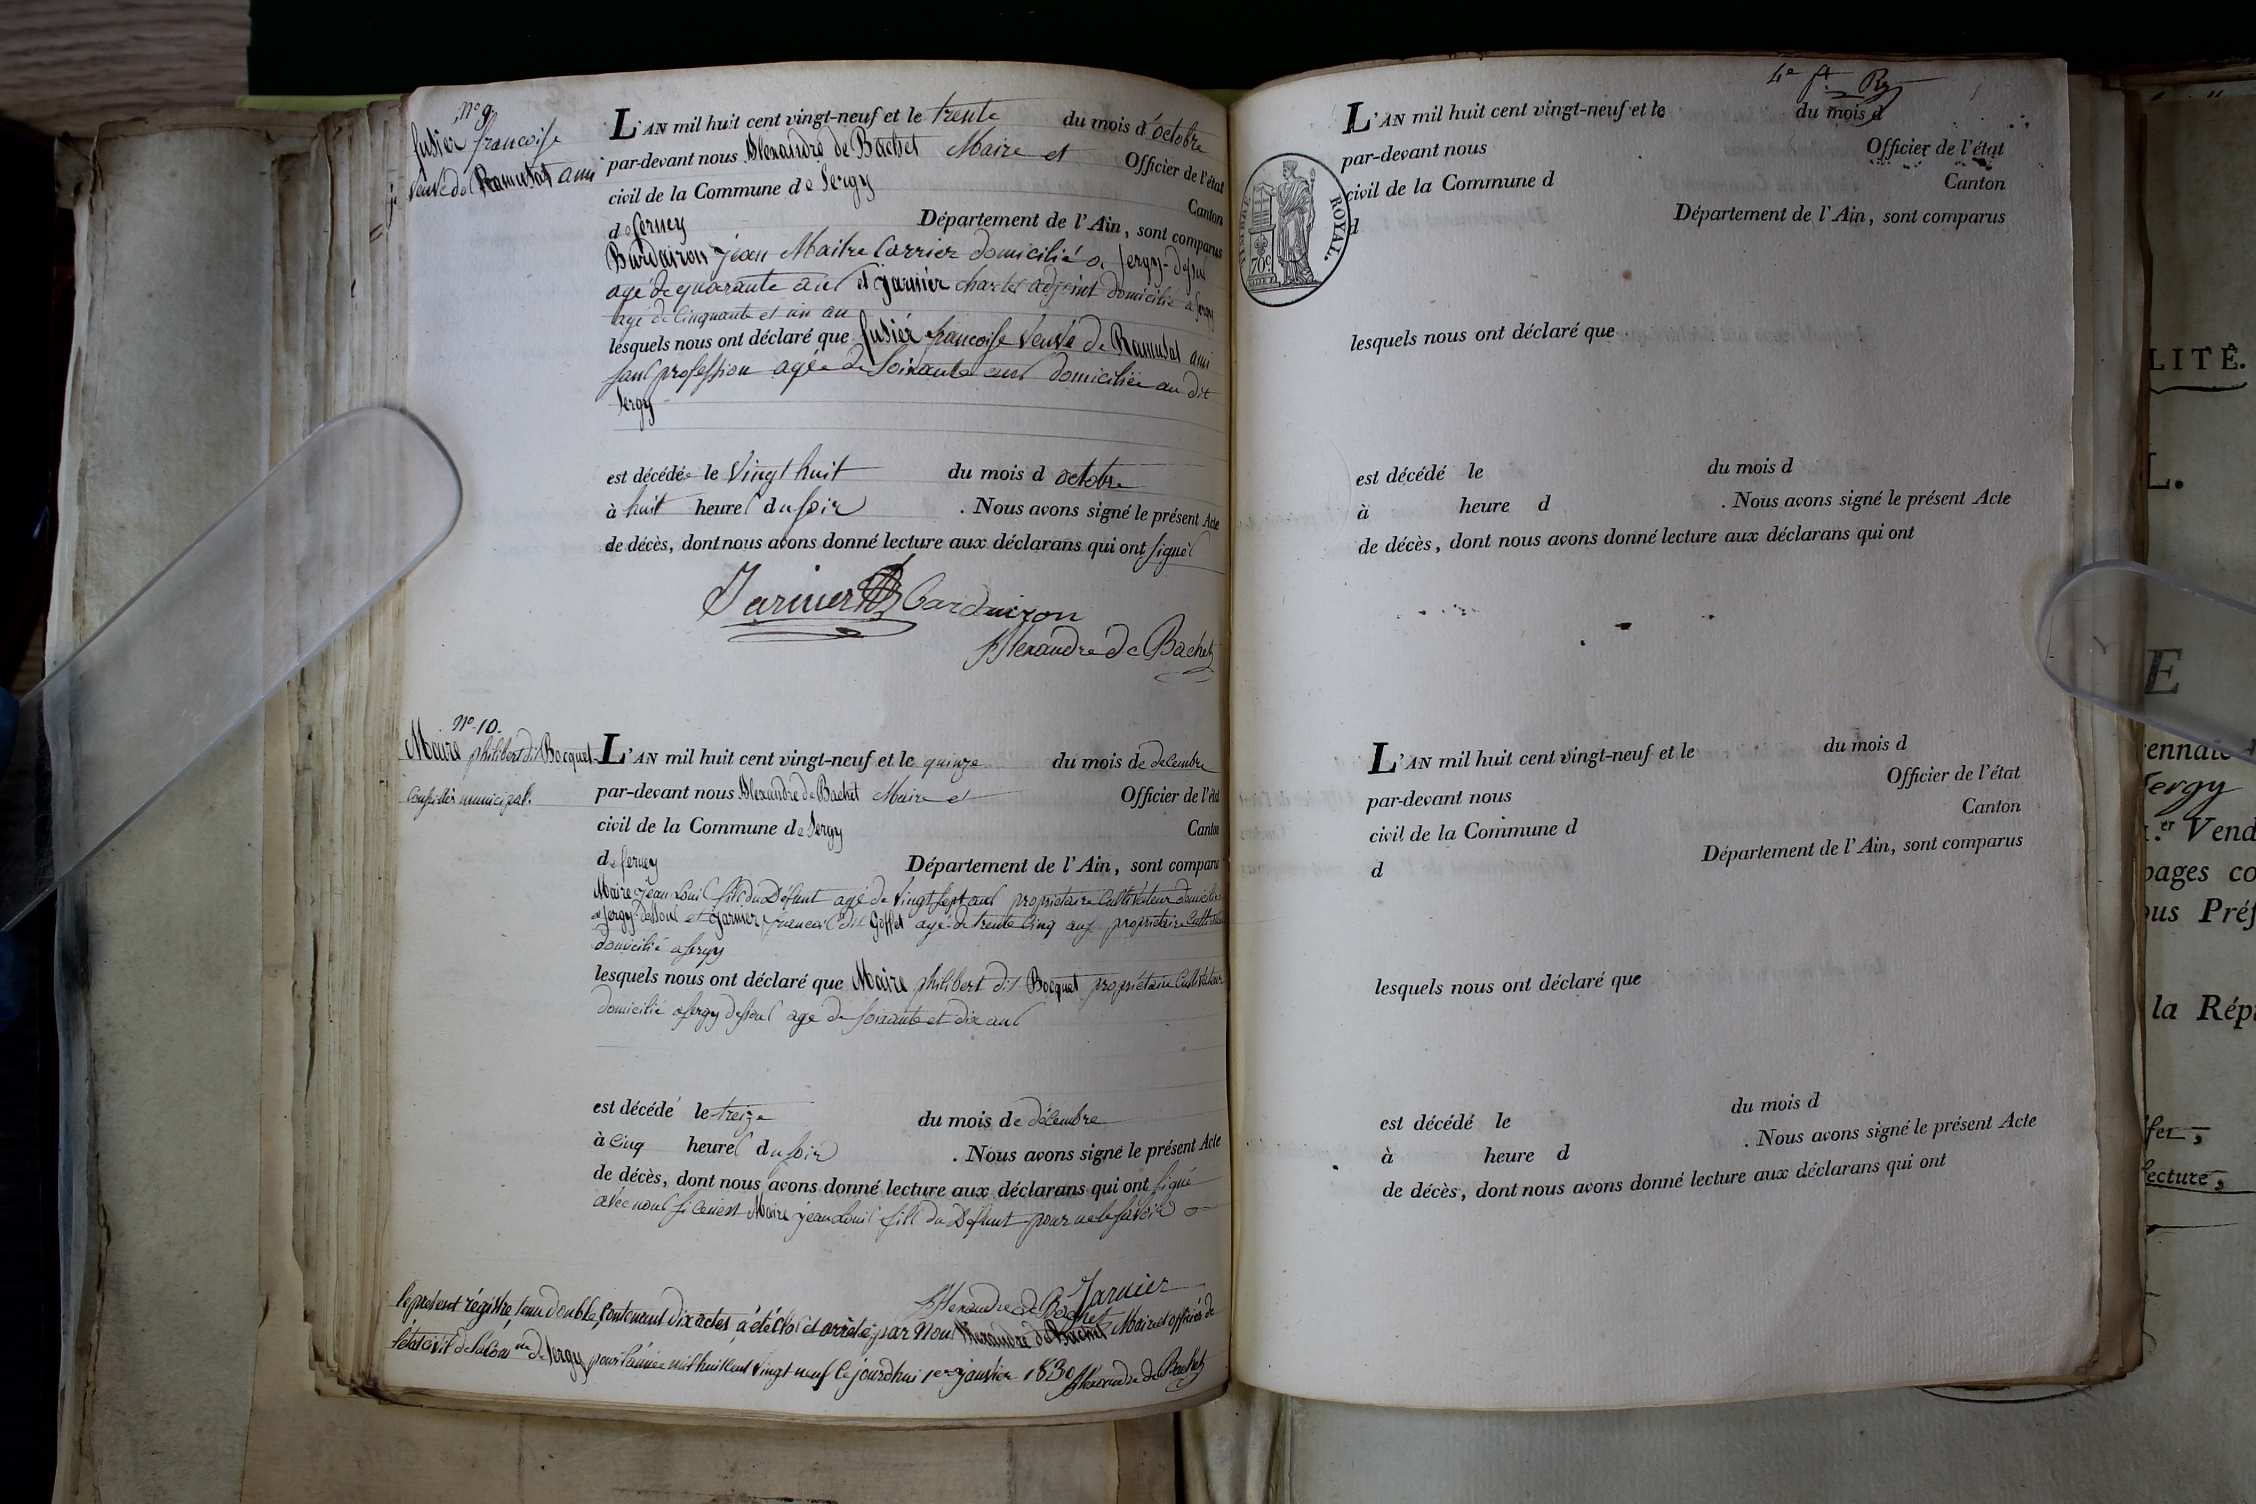 N° 9.
fusier francoise
veuve de Ramusat ami
L'AN mil huit cent vingt-neuf et le trente du mois d'octobre
par-devant nous Alexandre de Bachet Maire et Officier de l'état
civil de la Commune de Sergy Canton
de ferney Département de l'Ain, sont comparus
Bardairon jean Maitre Carrier domicilié a Sergy-dessus
agé de quarante ans et Jarnier charles adjoint domicilié a Sergy
agé de Cinquante et un an
lesquels nous ont déclaré que fusier francoise veuve de Ramusat ami
sans profession agée de Soixante ans domiciliée au dit
Sergy
est décédée le vingt huit du mois d octobre
à huit heures du soir . Nous avons signé le présent Acte
de décès, dont nous avons donné lecture aux déclarans qui ont signés
Jarnier Bardairon
Alexandre de Bachet
N° 10.
Maire philibert dit Bocquet
Conseiller municipal.
L'AN mil huit cent vingt-neuf et le quinze du mois de decembre
par-devant nous Alexandre de Bachet Maire et Officier de l'état
civil de la Commune de Sergy Canton
de ferney Département de l'Ain, sont comparus
Maire jean Louis fils du Défunt agé de vingt sept ans propriétaire Cultivateur domicilié
a Sergy-dessous et Jarnier francois dit Goffet agé de trente Cinq ans propriétaire Cultivateur
domicilié a Sergy
lesquels nous ont déclaré que Maire philibert dit Bocquet propriétaire Cultivateur
domicilié a Sergy dessous agé de soixante et dix ans
est décédé le treize du mois de décembre
à Cinq heures du soir . Nous avons signé le présent Acte
de décès, dont nous avons donné lecture aux déclarans qui ont signé
avec nous si cenest Maire jean Louis fils du Défunt pour ne le savoir
Jarnier
Alexandre de Bachet
le present régistre, tenu double, Contenant dix actes, a été clos et arrêté par Nous Alexandre de Bachet Maire et officier de
l'état civil de la Comne de Sergy pour l'année mil huit cent vingt neuf Cejourdhui 1er janvier 1830 Alexandre de Bachet
4e ft.
L'AN mil huit cent vingt-neuf et le du mois d
par-devant nous Officier de l'état
civil de la Commune d Canton
d Département de l'Ain, sont comparus
TIMBRE ROYAL.
70c
lesquels nous ont déclaré que
est décédé le du mois d
à heure d . Nous avons signé le présent Acte
de décès, dont nous avons donné lecture aux déclarans qui ont
L'AN mil huit cent vingt-neuf et le du mois d
par-devant nous Officier de l'état
civil de la Commune d Canton
d Département de l'Ain, sont comparus
lesquels nous ont déclaré que
est décédé le du mois d
à heure d . Nous avons signé le présent Acte
de décès, dont nous avons donné lecture aux déclarans qui ont
LITÉ.
L.
E
Sergy
er Vend
pages co
la Répu